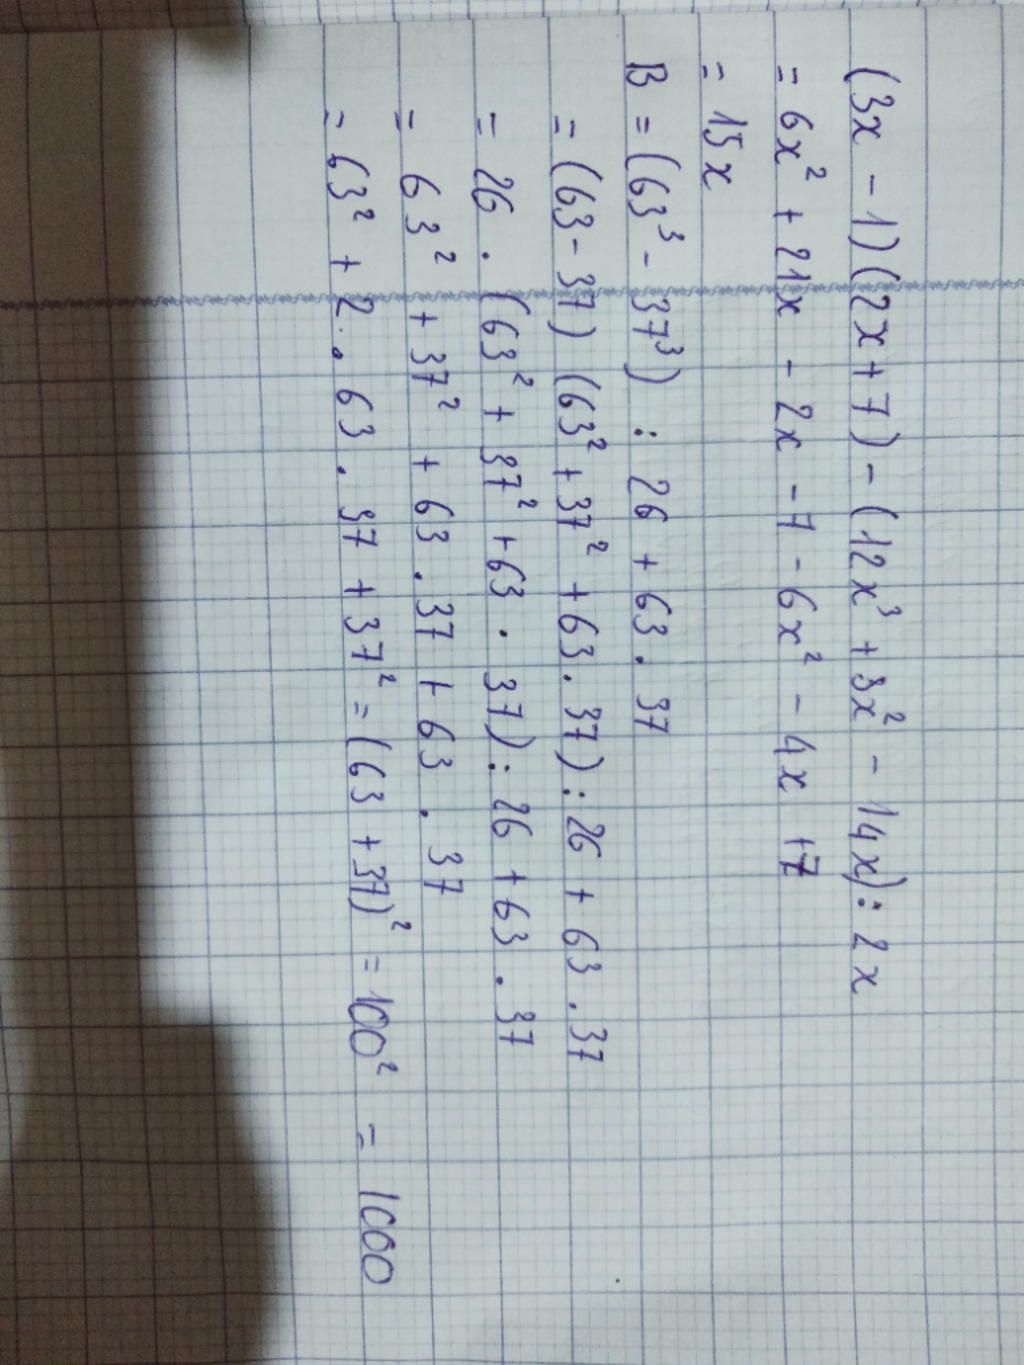 (3x - 1)(2x + 7) - (12x³ + 3x² - 14x) : 2x
= 6x² + 21x - 2x - 7 - 6x² - 4x + 7
= 15x
B = (63³ - 37³) : 26 + 63 . 37
= (63 - 37) (63² + 37² + 63 . 37) : 26 + 63 . 37
= 26 . (63² + 37² + 63 . 37) : 26 + 63 . 37
= 63² + 37² + 63 . 37 + 63 . 37
= 63² + 2 . 63 . 37 + 37² = (63 + 37)² = 100² = 1000